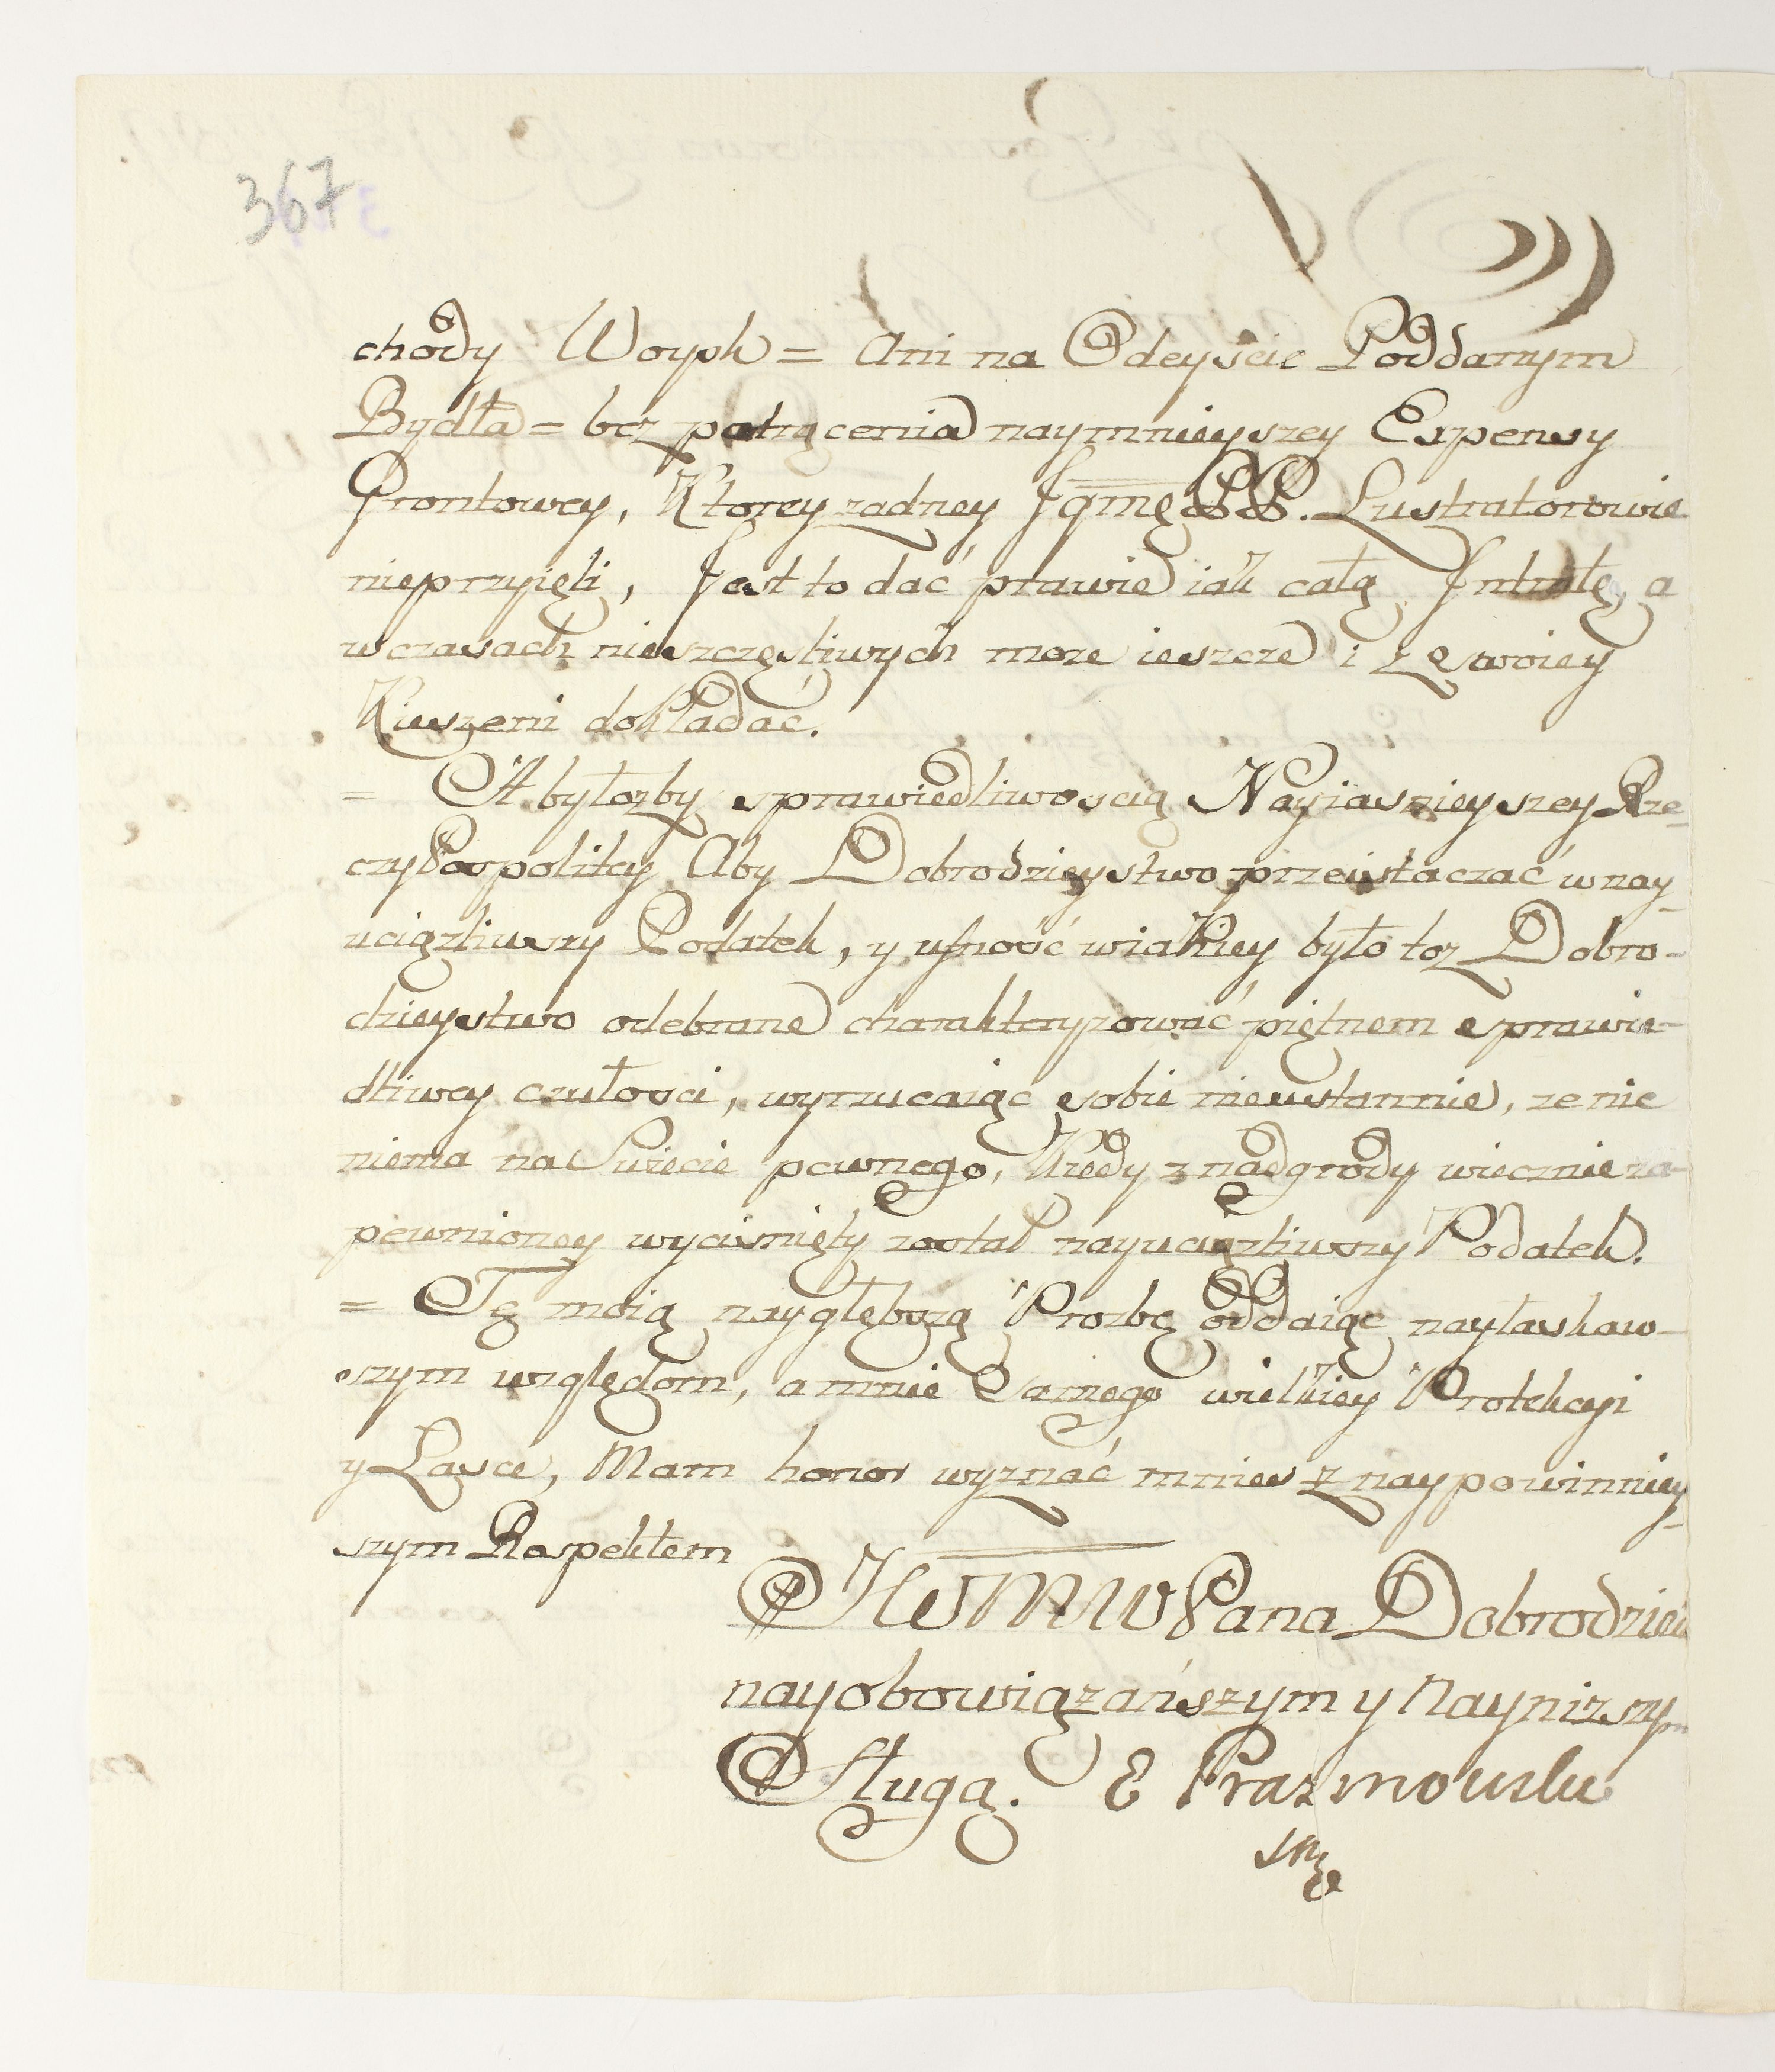 367
chody Woysk = Ani na Odeyscie Poddanym
Bydła = bez potrącenia naymnieyszey Expensy
Grontowey, Ktorey zadney Jgmę PP. Lustratorowie
nieprzyięli, Jest to dać prawie iak całą Intratę, a
wczasach nieszczęsliwych moze ieszcze i z Swoiey
Kieszeni dokładać.
= A byłozby sprawiedliwoscią Nayiasnieyszey Rze-
czyPospolitey Aby Dobrodzieystwo przeistaczać w nay
uciązliwszy Podatek, y ufność wiakiey było toz Dobro-
dzieystwo odebrane charakteryzować piętnem sprawie-
dliwey czułosci, wyrzucaiąc sobie nieustannie, ze nic
niema na Swiecie pewnego, Kiedy z nadgrody wiecznie za-
pewnioney wycisnięty został nayuciązliwszy Podatek.
= Tę moią naygłębszą Prozbę oddaiąc nayłaskaw-
szym względom, a mnie Samego wielkiey Protekcyi
y Łasce, Mam honor wyznać mnie z naypowinniey-
szym Respektem
JWWMWPana Dobrodzieia
nayobowiązańszym y Nayniższym
Sługą. E Prazmowski